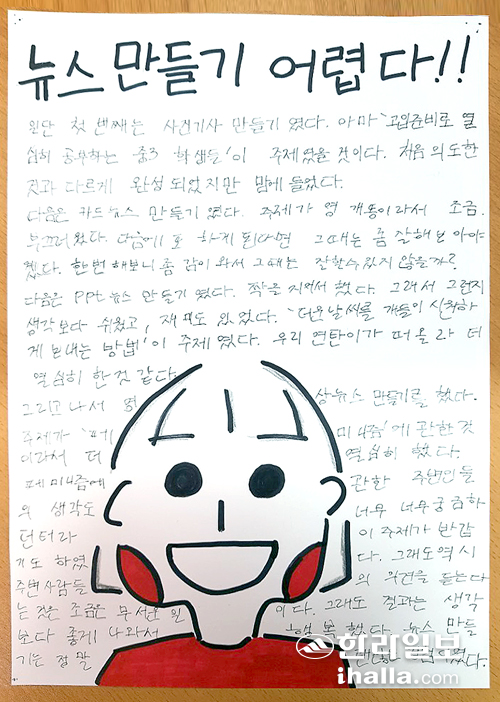 뉴스 만들기 어렵다!!
일단 첫 번째는 사진기사 만들기 였다. 아마 '고입준비로 열
심히 공부하는 중3 학생들'이 주제였을 것이다. 처음 의도한
것과 다르게 완성되었지만 맘에 들었다.
다음은 카드뉴스 만들기 였다. 주제가 영 개똥이라서 조금.
부끄러웠다. 다음에 또 하게 된다면 그때는 좀 잘해봐야
겠다. 한번 해보니 좀 감이 와서 그때는 잘할수있지 않을까?
다음은 PPt 뉴스 만들기 였다. 짝을 지어서 했다. 그래서 그런지
생각보다 쉬웠고, 재미도 있었다. '더운날씨를 개들이 시원하
게 보내는 방법'이 주제 였다. 우리 연탄이가 떠올라 더
열심히 한 것 같다.
그리고 나서 영상뉴스 만들기를 했다.
주제가 '페미니즘'에 관한 것
이라서 더 열심히 했다.
페미니즘에 관한 주변인들
의 생각도 너무 너무 궁금하
던터라 이 주제가 반갑
기도 하였다. 그래도 역시
주변사람들의 의견을 듣는다
는 것은 조금은 무서운 일이다. 그래도 결과는 생각
보다 좋게 나와서 행복했다. 뉴스 만들
기는 정말 였다.
한라일보
ihalla.com